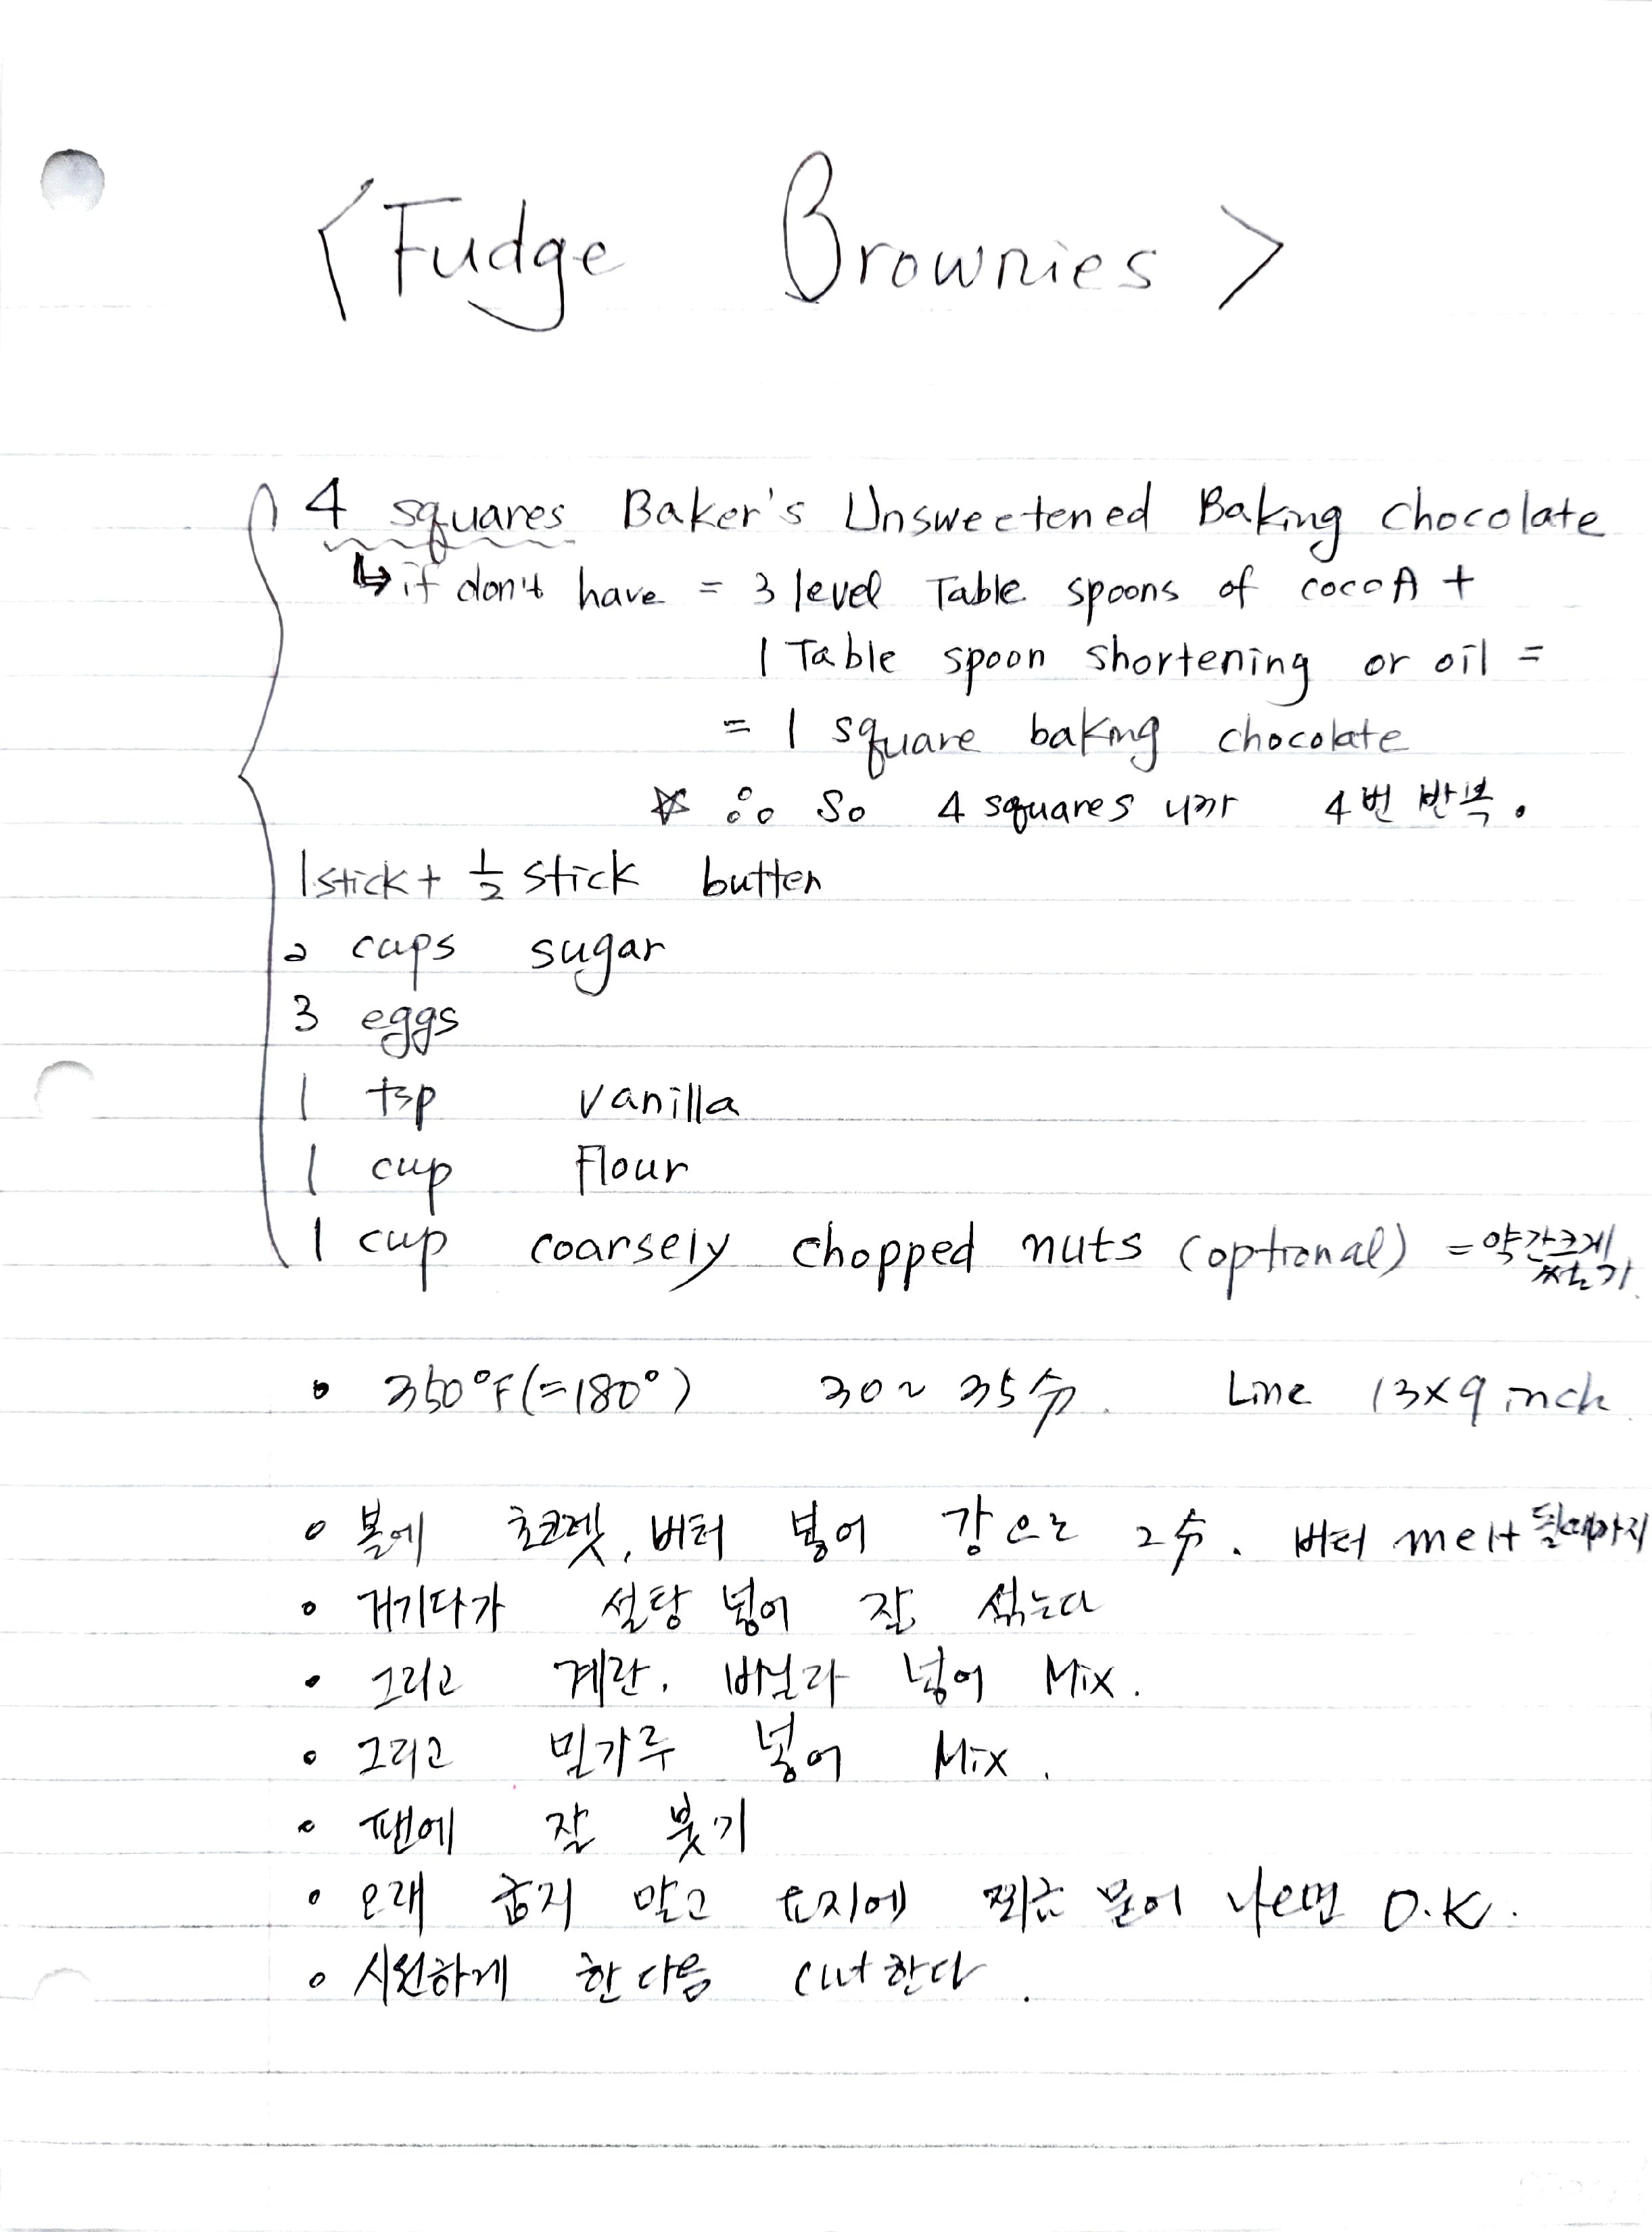 <Fudge Brownies>
4 squares Baker's Unsweetened Baking chocolate
↳ if don't have = 3 level Table spoons of cocoA +
1 Table spoon shortening or oil =
= 1 square baking chocolate
☆ ஃ So 4 squares 니까 4번 반복.
1 stick + ½ stick butter
2 cups sugar
3 eggs
1 tsp vanilla
1 cup Flour
1 cup coarsely chopped nuts (optional) = 약간크게
써는기.
• 350°F (=180°) 30~35分. Line 13x9 inch
• 볼에 초코렛, 버터 넣어 강으로 2分. 버터 melt 될때까지
• 거기다가 설탕 넣어 잘 섞는다
• 그리고 계란, 바닐라 넣어 Mix.
• 그리고 밀가루 넣어 Mix.
• 팬에 잘 붓기
• 오래 굽지 말고 요지에 찌금 묻어 나오면 O.K.
• 시원하게 한다음 cut한다.